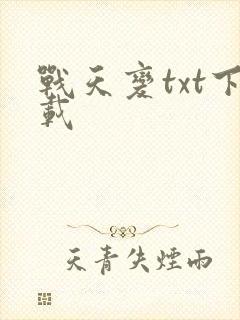 戰天變txt下
載
天青失煙雨